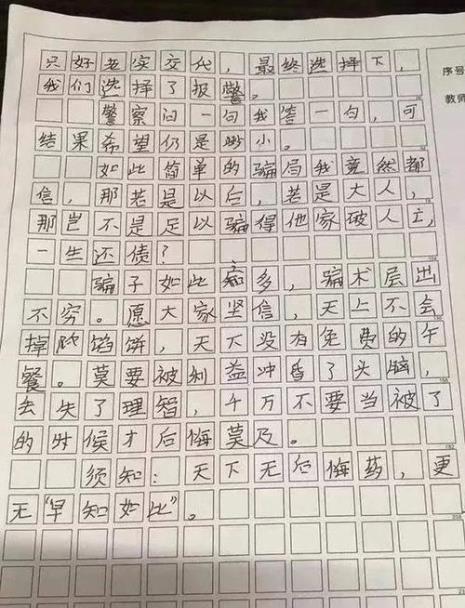 只好老实交代，最终选择下，
我们选择了报警。
警察问一句我答一句，可
结果希望仍是渺小。
如此简单的骗局我竟然都
信，那若是以后，若是大人，
那岂不是足以骗得他家破人亡，
一生还债？
骗子如此多，骗术层出
不穷。愿大家坚信，天上不会
掉陷馅饼，天下没有免费的午
餐。莫要被利益冲昏了头脑，
去失了理智，千万不要当被了
的时候才后悔莫及。
须知：天下无后悔药，更
无“早知如此”。
序号
教师